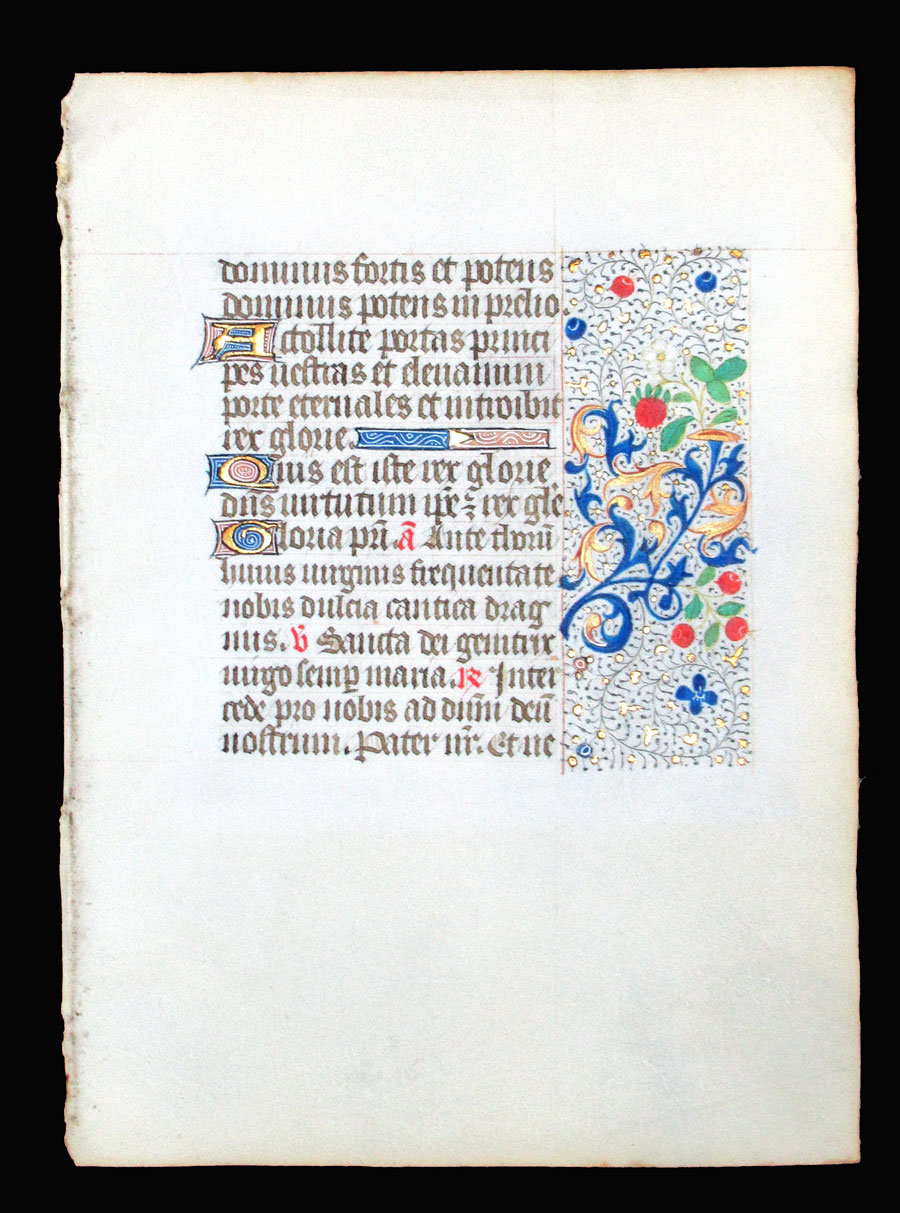 dominus fortis et potens
dominus potens in prelio.
Attollite portas princi
pes vestras et elevamini
porte eternales et introibit
rex glorie.
Quis est iste rex glorie
dn̄s virtutum ip̄e ⁊ rex gl̄e.
Gloria pr̄i. ā Ante thorū
huius virginis frequentate
nobis dulcia cantica drag
mis. v̄ Sancta dei genitrix
virgo semp̄ maria. ℟ Inter
cede pro nobis ad dn̄m deū
nostrum. Pater nr̄. Et ne